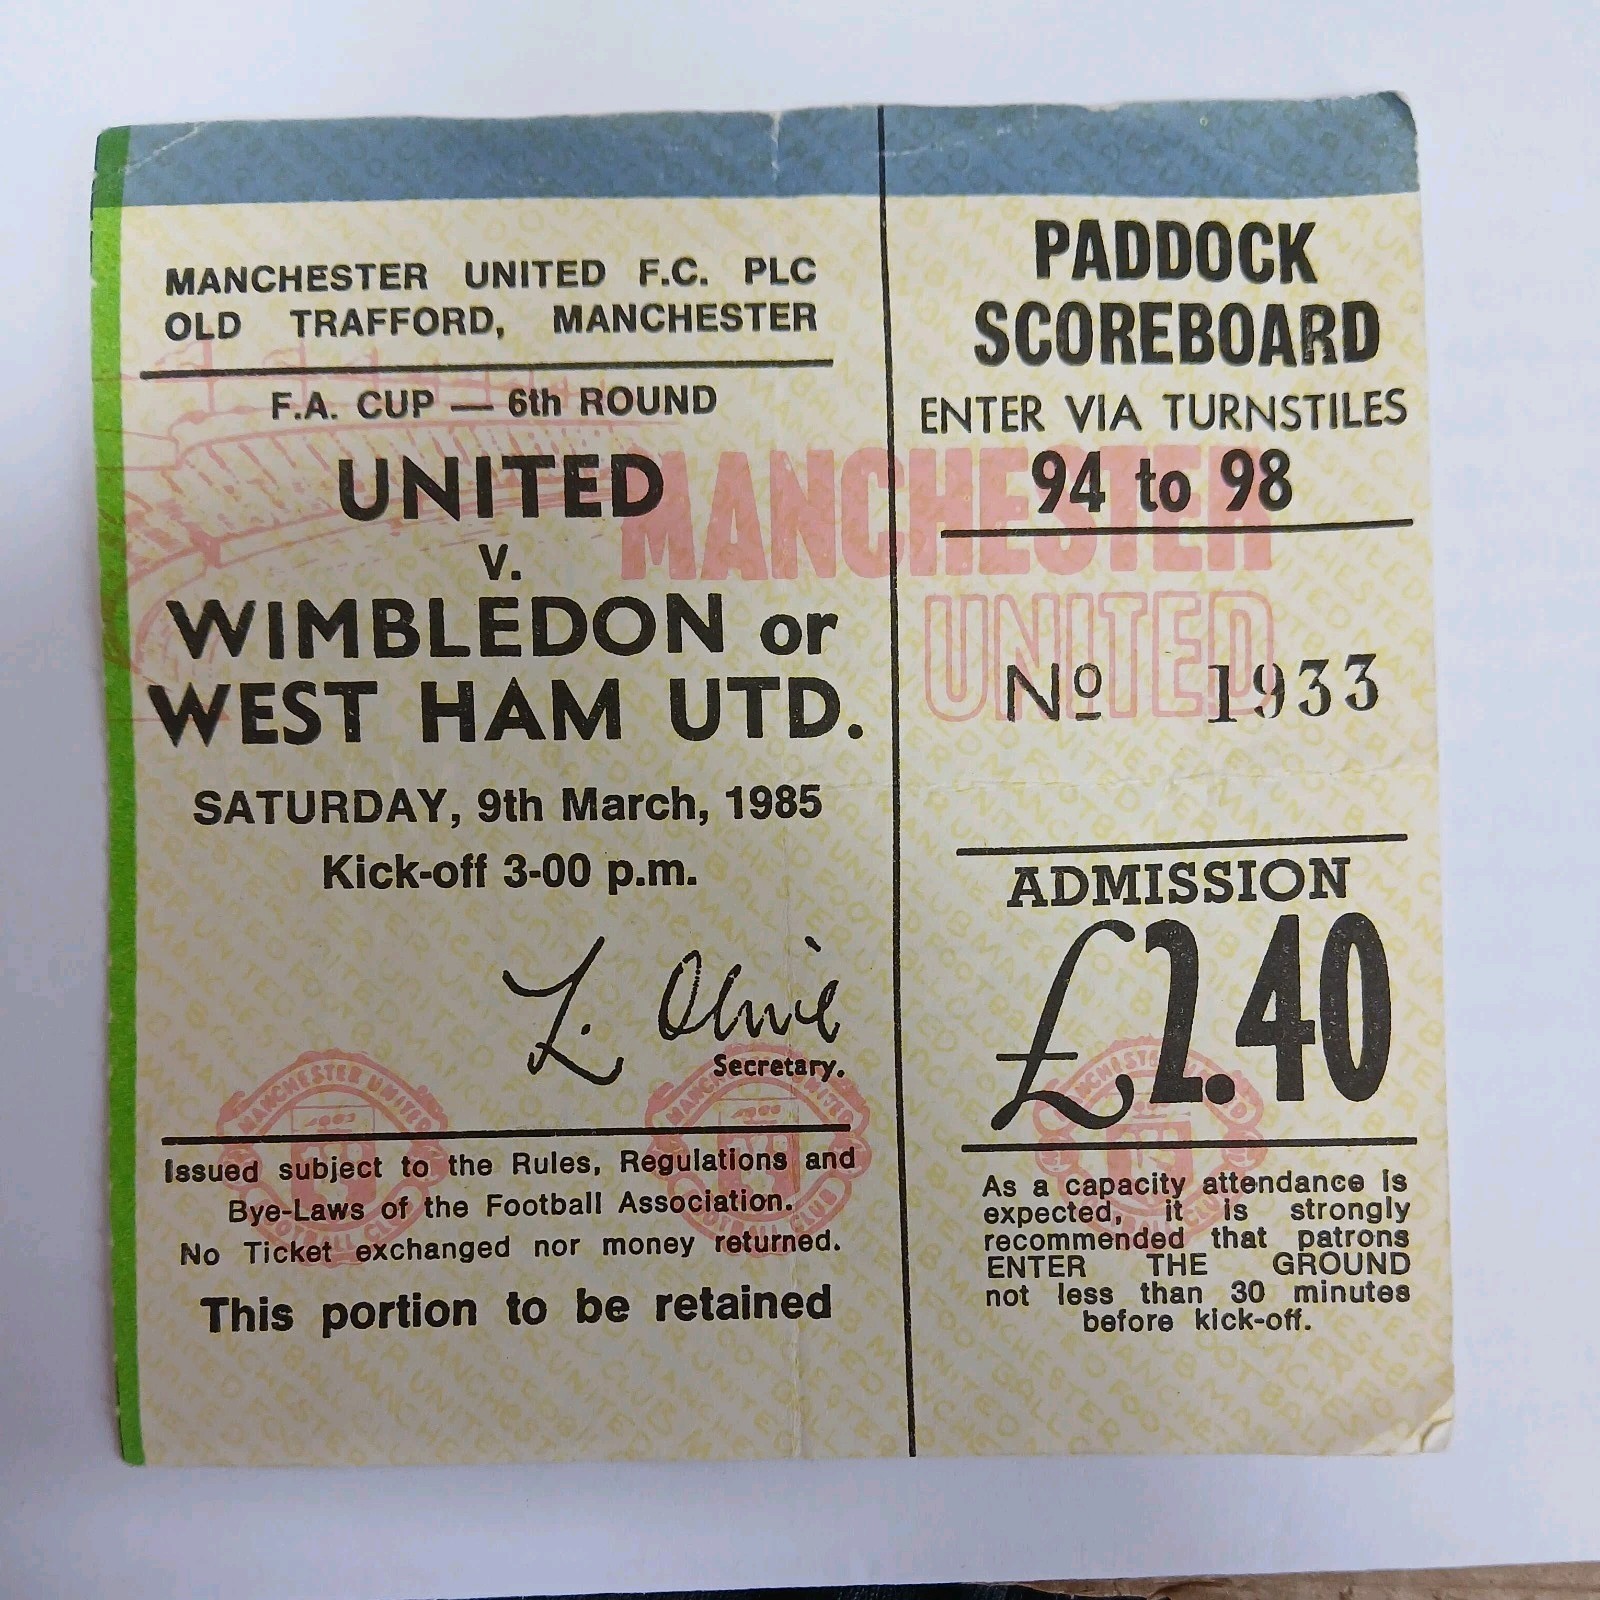 MANCHESTER UNITED F.C. PLC
OLD TRAFFORD, MANCHESTER
F.A. CUP — 6th ROUND
UNITED
v.
WIMBLEDON or
WEST HAM UTD.
SATURDAY, 9th March, 1985
Kick-off 3-00 p.m.
L. Olive
Secretary.
Issued subject to the Rules, Regulations and
Bye-Laws of the Football Association.
No Ticket exchanged nor money returned.
This portion to be retained
PADDOCK
SCOREBOARD
ENTER VIA TURNSTILES
94 to 98
MANCHESTER
UNITED
Nº 1933
ADMISSION
£2.40
As a capacity attendance is
expected, it is strongly
recommended that patrons
ENTER THE GROUND
not less than 30 minutes
before kick-off.